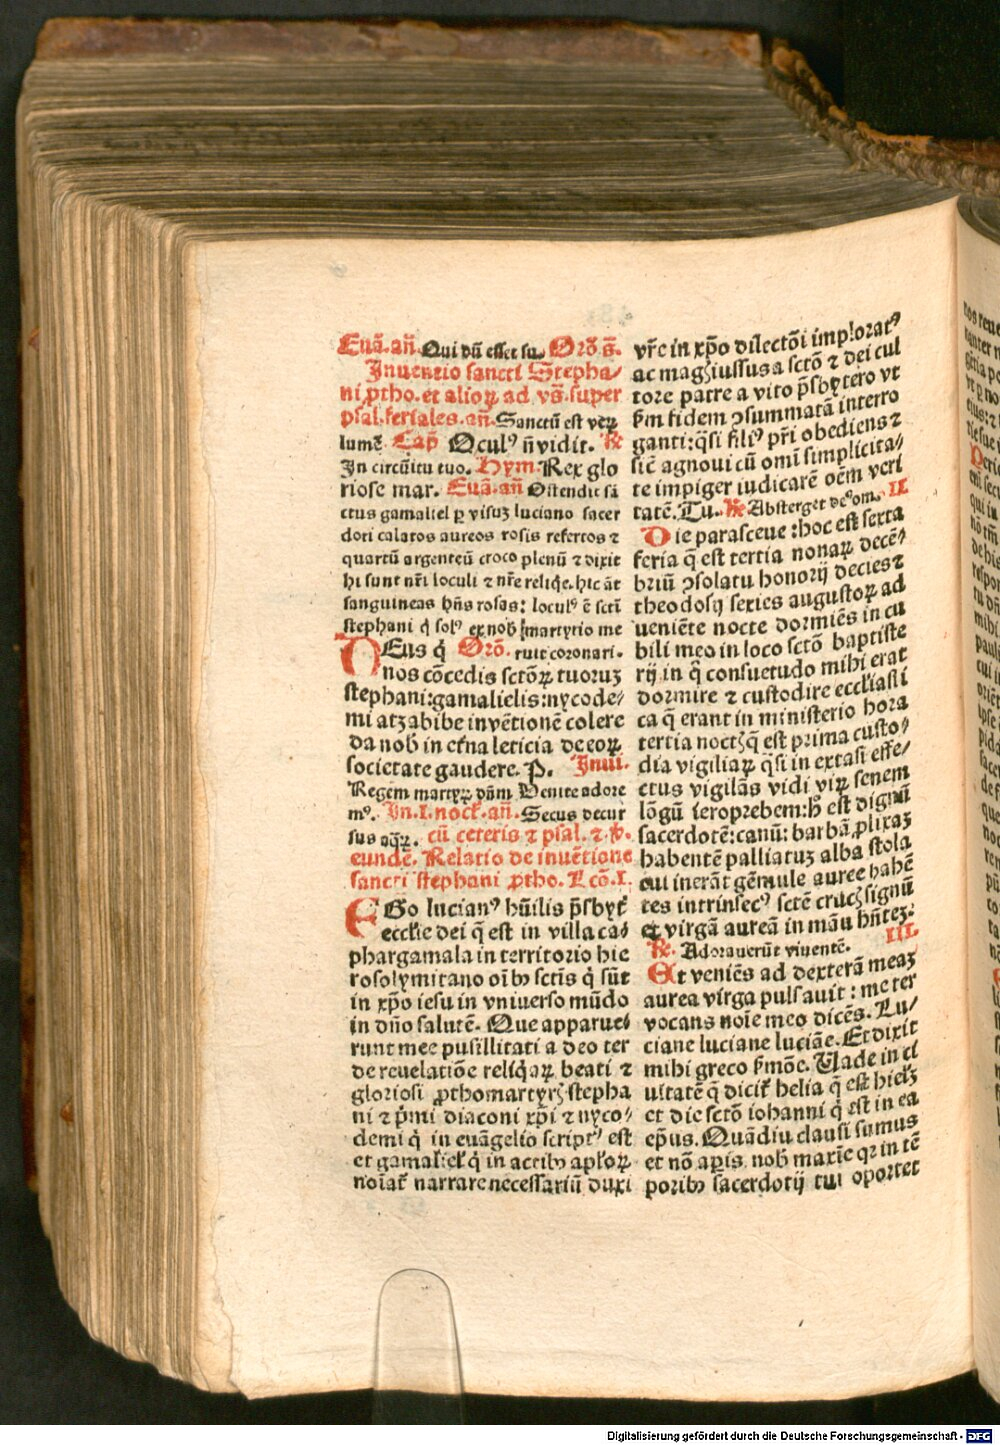 Euā. añ. Qui dū esset su. Orō s̄.
Inuentio sancti Stepha/
ni ꝓtho. et alioꝝ ad vs̄. super
psal. feriales. añ. Sanctū est veꝝ
lumē Cap̄ Oculꝰ ñ vidit. ℞
In circūitu tuo. Hym. Rex glo
riose mar. Euā. añ Ostendit sā
ctus gamaliel ꝑ visuꝫ luciano sacer
doti calatos aureos rosis refertos ⁊
quartū argenteū croco plenū ⁊ dixit
hi sunt nr̄i loculi ⁊ nr̄e reliq̄e. hic āt
sanguineas hn̄s rosas: loculꝰ ē scti
stephani q̇ solꝰ ex nob̄ martyrio me
DEus q̇ Orō. ruit coronari.
nos cōcedis sctōꝝ tuoruꝫ
stephani: gamalielis: nycode/
mi atꝫ abibe invētionē colere
da nob̄ in et̄na leticia de eoꝝ
societate gaudere. P. Inui.
Regem martyꝝ dn̄m Venite adore
mꝰ. In. I. noct̄. añ. Secus decur
sus aq̄ꝝ. cū ceteris ⁊ psal. ⁊ v̄.
eunde. Relatio de inuētione
sancti stephani ꝓtho. Lcō. I.
EGo lucianꝰ hūilis p̄sbyt̄
eccl̄ie dei q̄ est in villa ca/
phargamala in territorio hie
rosolymitano oībꝰ sctīs q̇ sūt
in xp̄o iesu in vniuerso mūdo
in dn̄o salutē. Que apparue/
runt mee pusillitati a deo ter
de reuelatiōe reliq̇aꝝ beati ⁊
gloriosi ꝓthomartyrꝭ stepha
ni ⁊ p̄mi diaconi xp̄i ⁊ nyco/
demi q̇ in euāgelio scriptꝰ est
et gamaliel q̇ in actibꝰ apl̄oꝝ
noīat̄ narrare necessariū duxi
vr̄e in xp̄o dilectōi imploratꝰ
ac magꝭ iussus a sctō ⁊ dei cul
tore patre a vito p̄sbytero vt
p̄m fidem ↄsummatā interro
ganti: q̄si filiꝰ pr̄i obediens ⁊
sic̄ agnoui cū omī simplicita/
te impiger iudicarē oēm veri
tatē. Tu. ℞ Absterget deꝰ om. II
Die parasceue: hoc est sexta
feria q̄ est tertia nonaꝝ decē/
briū ↄsolatu honorij decies ⁊
theodosij sexies augustoꝝ ad
ueniēte nocte dormiēs in cu
bili meo in loco sctō baptiste
rij in q̄ consuetudo mihi erat
dormire ⁊ custodire eccl̄iasti
ca q̄ erant in ministerio hora
tertia noctꝭ q̄ est prima custo/
dia vigiliaꝝ q̄si in extasi effe/
ctus vigilās vidi viꝝ senem
lōgū ieroprebem: h̄ est dignū
sacerdotē: canū: barbā ꝓlixaꝫ
habentē palliatuꝫ alba stola
cui inerāt gēmule auree habē
tes intrinsecꝰ sctē crucꝭ signū
et virgā aureā in māu hn̄teꝫ.
℞. Adorauerūt viuentē. III.
Et veniēs ad dexterā meaꝫ
aurea virga pulsauit: me ter
vocans noīe meo dicēs. Lu/
ciane luciane luciāe. Et dixit
mihi greco s̄mōe. Vade in ci
uitatē q̄ dicit̄ helia q̄ est hierlꝫ
et dic sctō iohanni q̇ est in ea
ep̄us. Quādiu clausi sumus
et nō aꝑis nob̄ maxīe qꝛ in tē
poribꝰ sacerdotij tui oportet
Digitalisierung gefördert durch die Deutsche Forschungsgemeinschaft - DFG